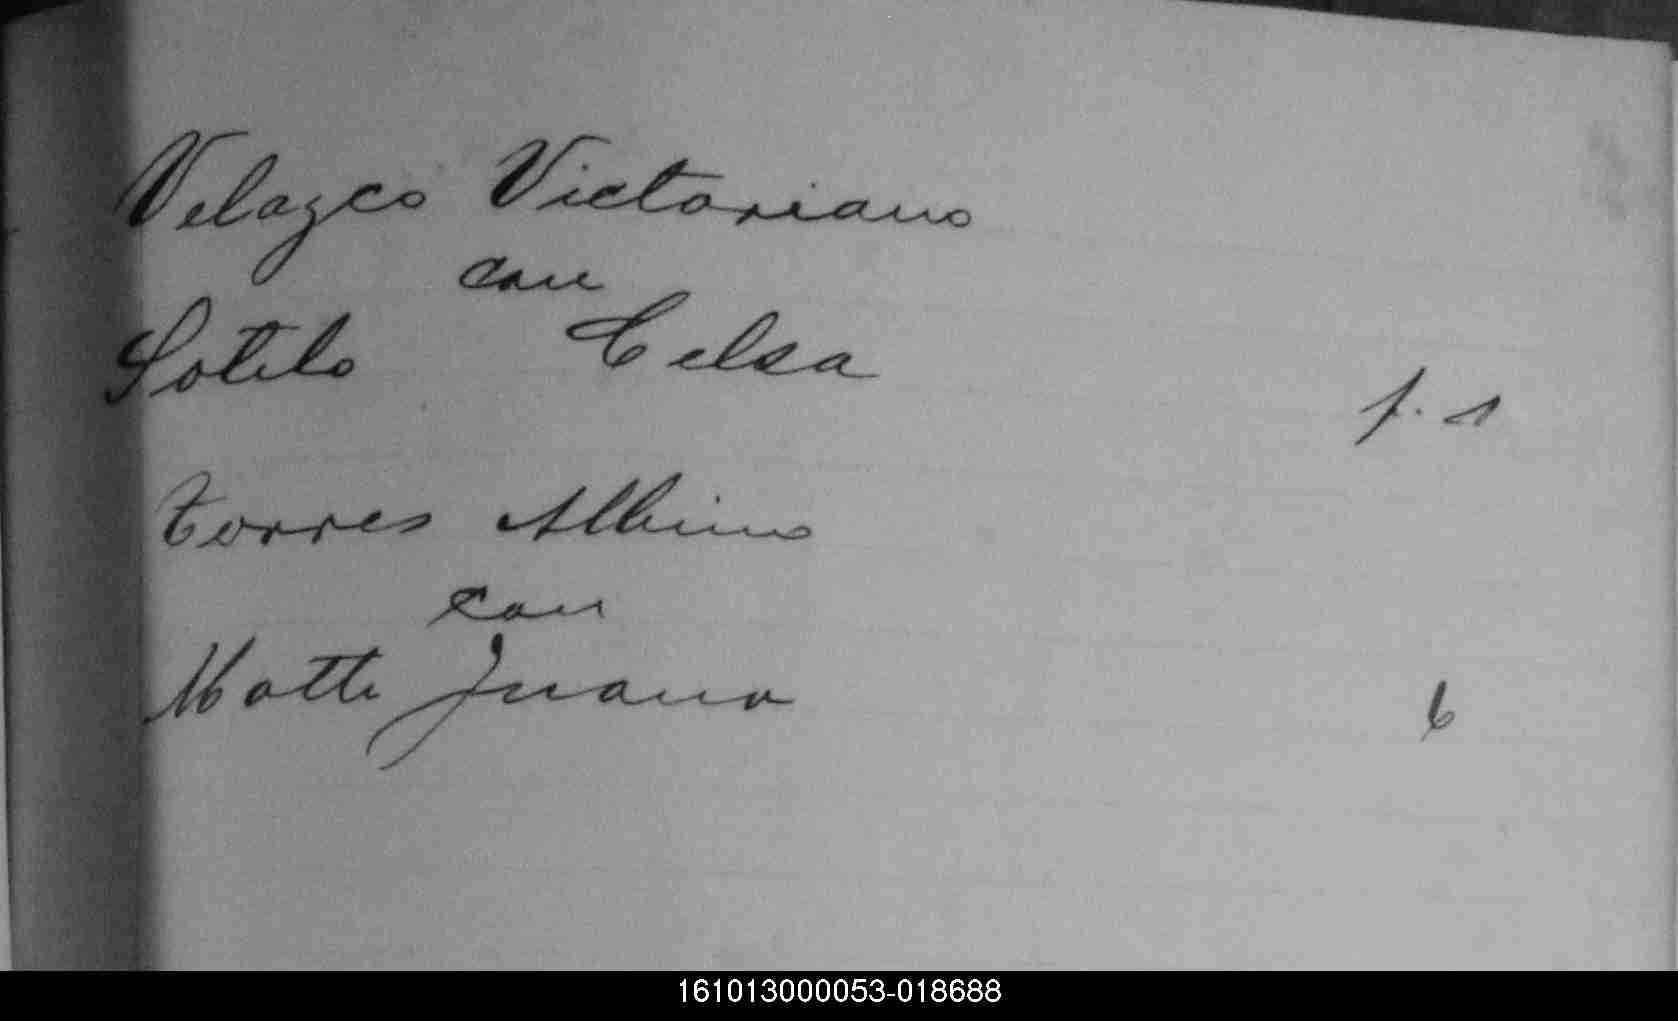 Velazco Victoriano
con
Sotelo Celsa f. 1
Torres Albino
con
Matte Juana 6
161013000053-018688